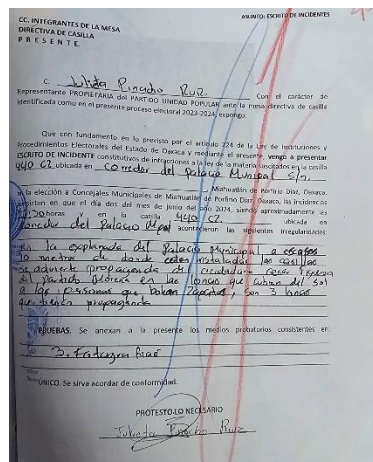 ASUNTO: ESCRITO DE INCIDENTES
CC. INTEGRANTES DE LA MESA
DIRECTIVA DE CASILLA
P R E S E N T E.
C. Julieta Pinacho Ruiz. Con el carácter de
Representante PROPIETARIA del PARTIDO UNIDAD POPULAR ante la mesa directiva de casilla
identificada como en el presente proceso electoral 2023-2024, expongo:
Que con fundamento en lo previsto por el artículo 224 de la Ley de Instituciones y
Procedimientos Electorales del Estado de Oaxaca y mediante el presente, vengo a presentar
ESCRITO DE INCIDENTE constitutivos de infracciones a la ley de la materia suscitados en la casilla
440 C2 ubicada en Corredor del Palacio Municipal s/n.
Miahuatlán de Porfirio Díaz, Oaxaca,
la elección a Concejales Municipales de Miahuatlán de Porfirio Díaz, Oaxaca, las incidencias
consisten en que el día dos del mes de junio del año 2024, siendo aproximadamente las
horas y en la casilla 440 C2. ubicada en
Corredor del Palacio acontecieron las siguientes irregularidades
en la explanada del Palacio Municipal a escasos
10 metros de donde están instaladas las casillas
se advierte propaganda de ciudadano
del Partido Morena en las lonas que cubren del sol
a las personas que, son 3 lonas
que tienen propaganda
PRUEBAS. Se anexan a la presente los medios probatorios consistentes en:
3.
ÚNICO. Se sirva acordar de conformidad.
PROTESTO LO NECESARIO
Julieta Pinacho Ruiz